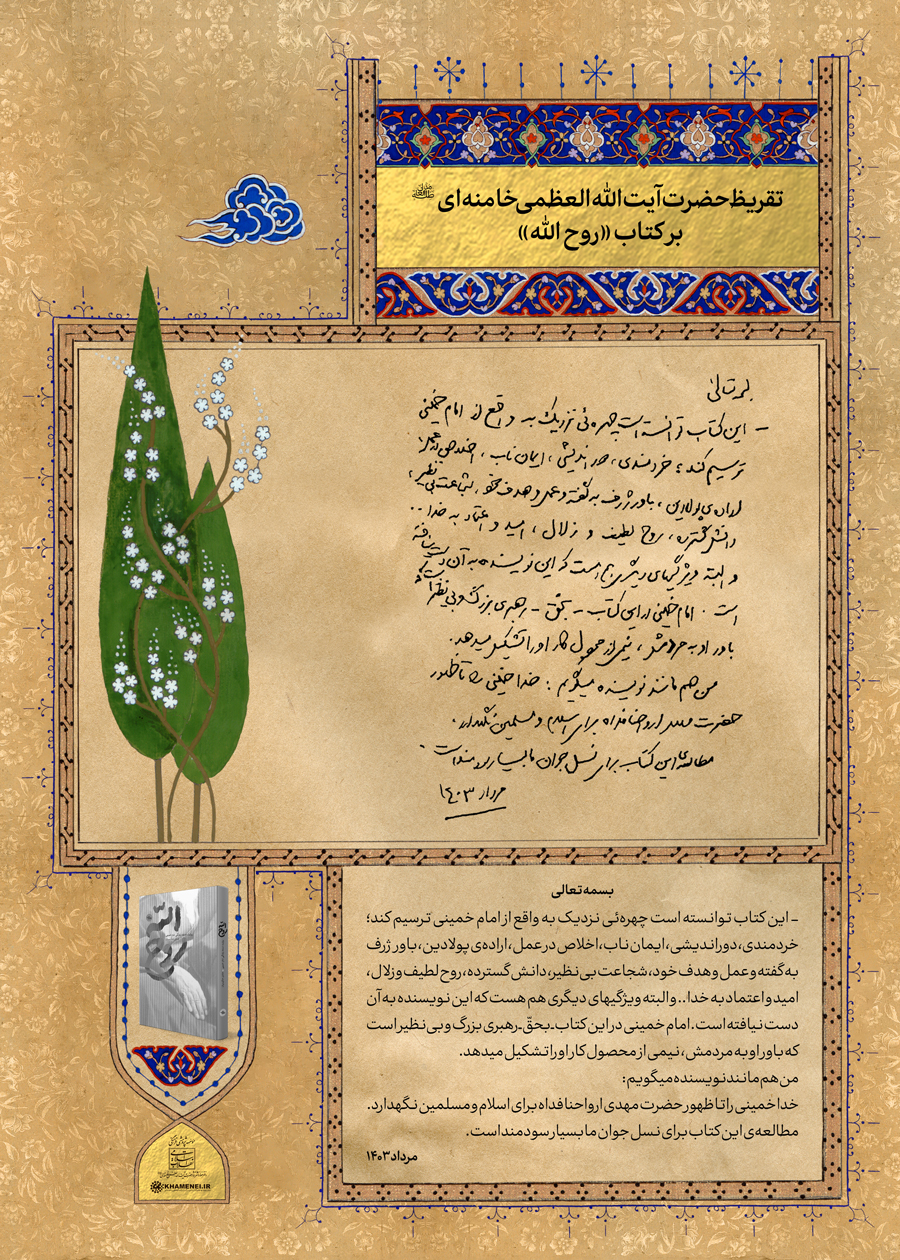 تقریظ حضرت آیت‌الله العظمی خامنه‌ای
بر کتاب «روح الله»
بسمه تعالی
- این کتاب توانسته است چهره‌ئی نزدیک به واقع از امام خمینی
ترسیم کند؛ خردمندی، دوراندیشی، ایمان ناب، اخلاص در عمل،
اراده‌ی پولادین، باور ژرف به گفته و عمل و هدف خود، شجاعت بی نظیر،
دانش گسترده، روح لطیف و زلال، امید و اعتماد به خدا..
و البته ویژگیهای دیگری هم هست که این نویسنده به آن دست نیافته
است. امام خمینی در این کتاب - بحق - رهبری بزرگ و بی نظیر است که
باور او به مردمش، نیمی از محصول کار او را تشکیل میدهد.
من هم مانند نویسنده میگویم: خدا خمینی را تا ظهور
حضرت مهدی ارواحنا فداه برای اسلام و مسلمین نگهدارد.
مطالعه‌ی این کتاب برای نسل جوان ما بسیار سودمند است.
مرداد ۱۴۰۳
بسمه تعالی
- این کتاب توانسته است چهره‌ئی نزدیک به واقع از امام خمینی ترسیم کند؛
خردمندی، دوراندیشی، ایمان ناب، اخلاص در عمل، اراده‌ی پولادین، باور ژرف
به گفته و عمل و هدف خود، شجاعت بی نظیر، دانش گسترده، روح لطیف و زلال،
امید و اعتماد به خدا.. و البته ویژگیهای دیگری هم هست که این نویسنده به آن
دست نیافته است. امام خمینی در این کتاب - بحقّ - رهبری بزرگ و بی نظیر است
که باور او به مردمش، نیمی از محصول کار او را تشکیل میدهد.
من هم مانند نویسنده میگویم:
خدا خمینی را تا ظهور حضرت مهدی ارواحنا فداه برای اسلام و مسلمین نگهدارد.
مطالعه‌ی این کتاب برای نسل جوان ما بسیار سودمند است.
مرداد ۱۴۰۳
الله
روح
KHAMENEI.IR